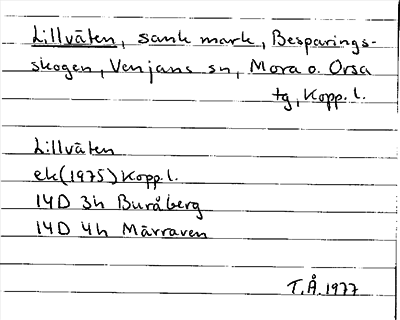 Lillväten, sank mark, Besparings-
skogen, Venjans sn, Mora o. Orsa
tg, Kopp. l.
Lillväten
ek (1975) Kopp. l.
14D 3h Buråberg
14D 4h Mårraven
T.Å. 1977